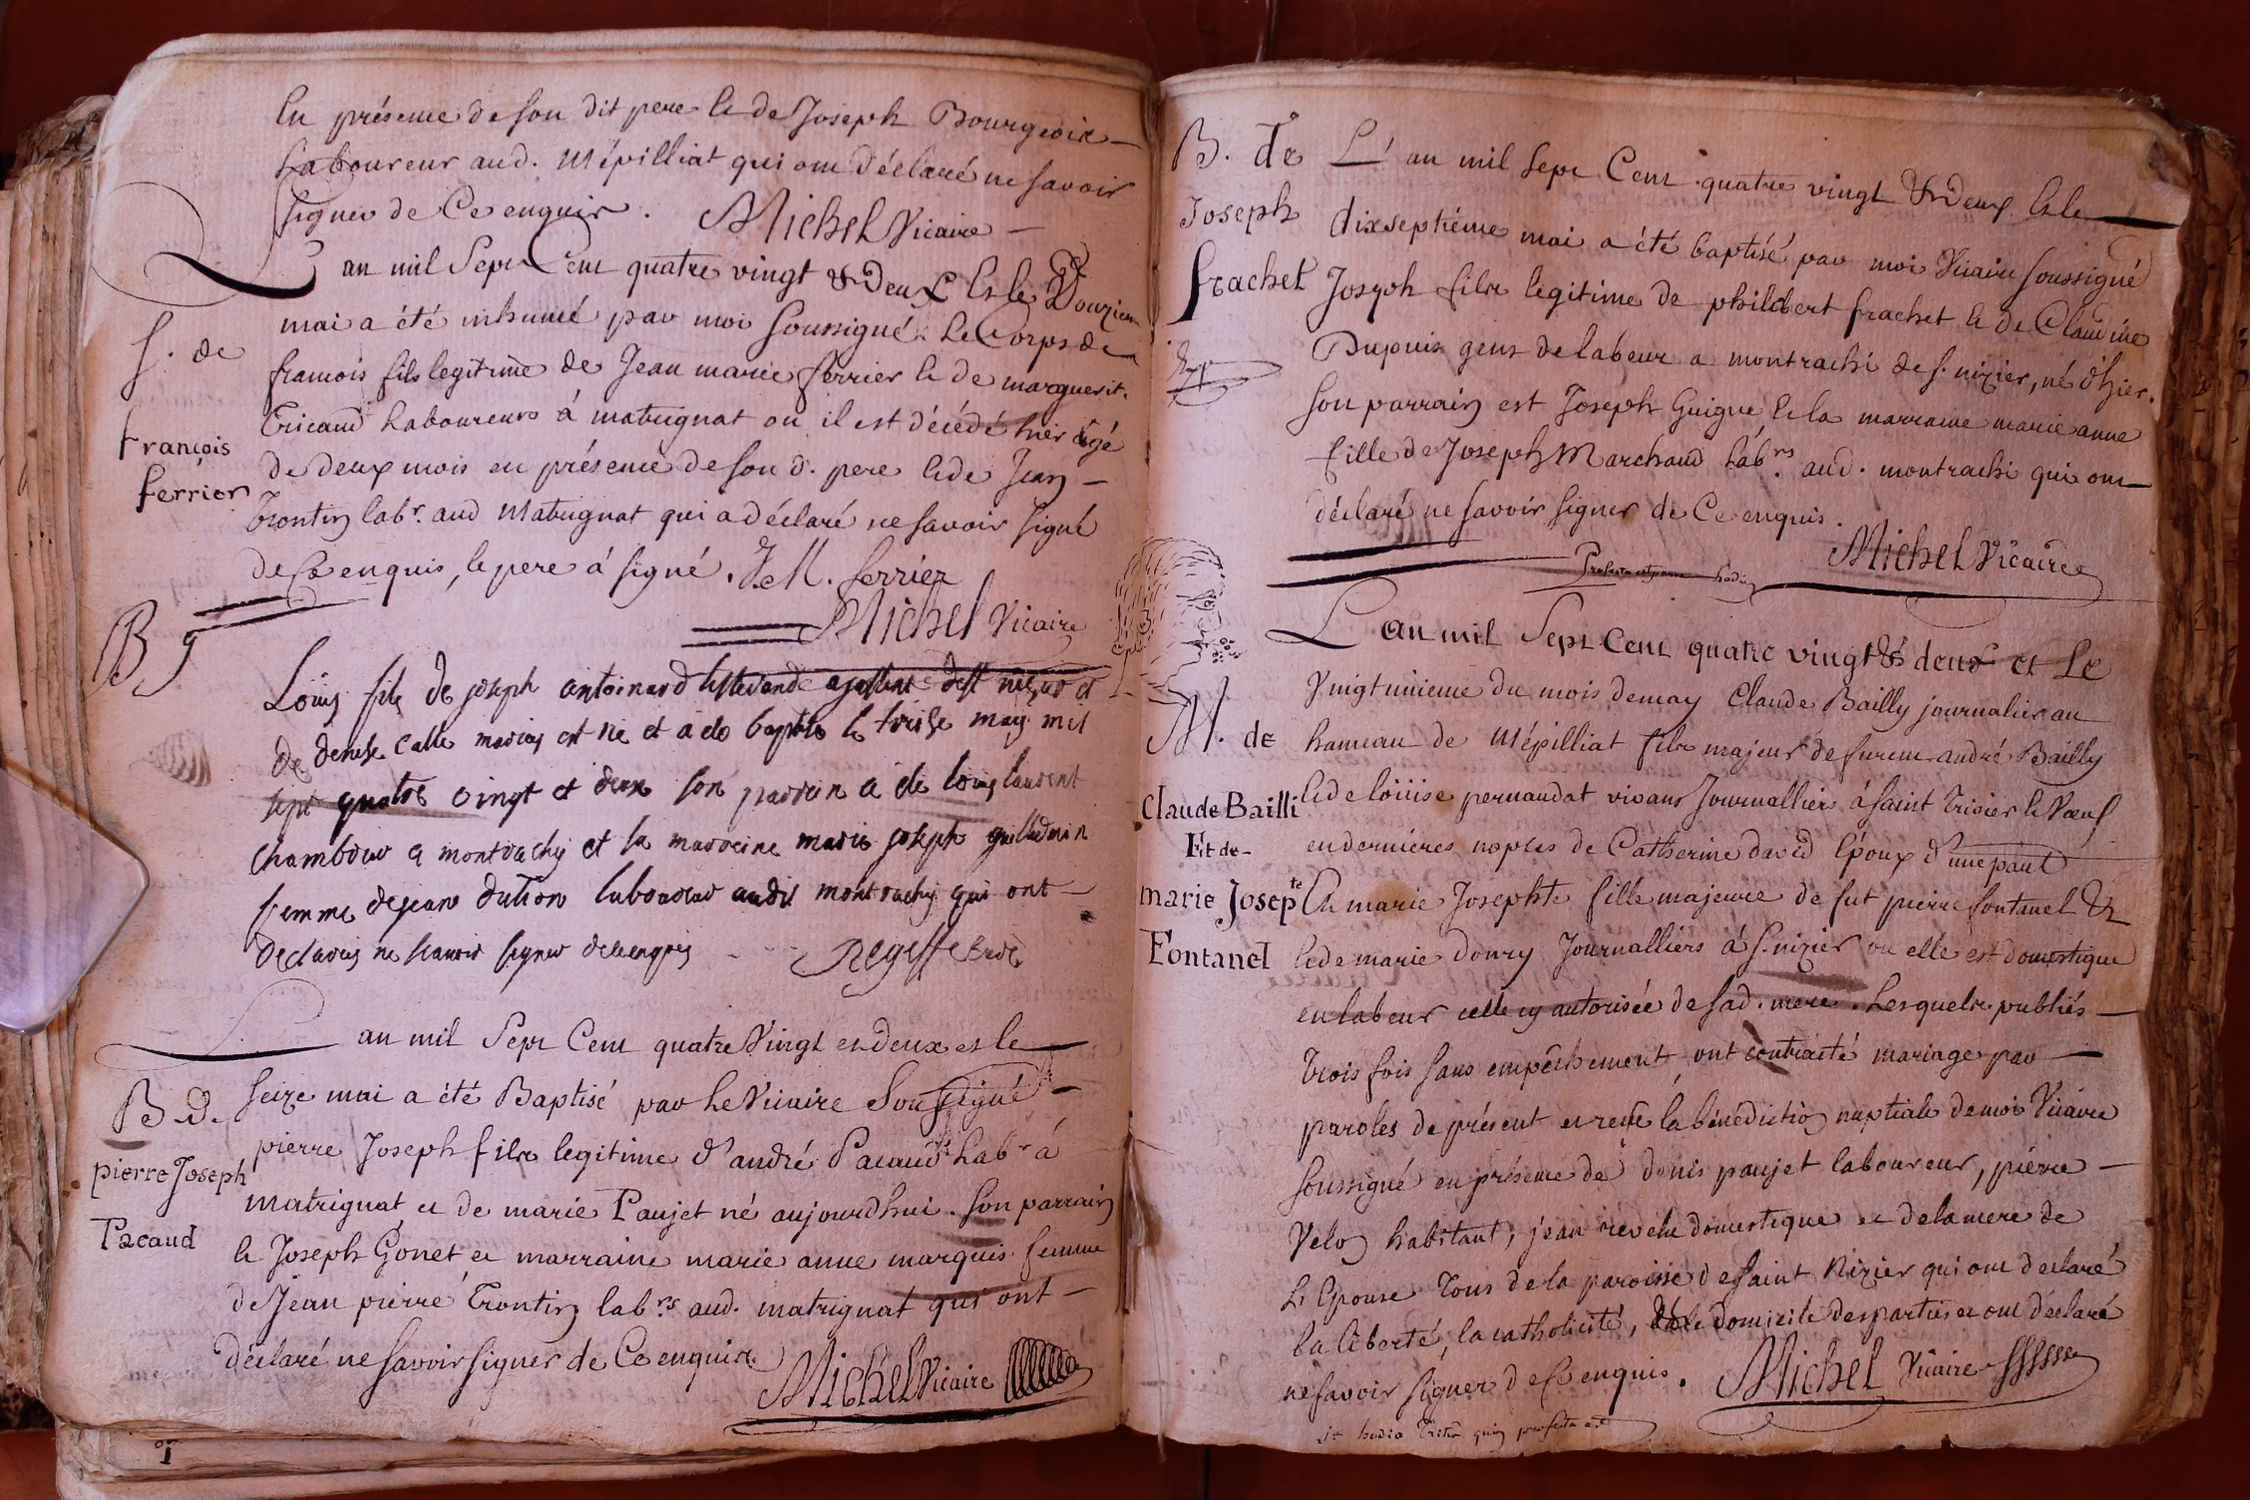 En présence de son dit pere et de Joseph Bourgeois
Laboureur aud. Mépilliat qui ont déclaré ne savoir
signer de ce enquis. Michel Vicaire
L'an mil Sept Cent quatre vingt & Deux Et le Douzieme
S. de
françois
ferrier
mai a été inhumé par moi Soussigné Le Corps de
francois fils legitime de Jean marie ferrier et de marguerit.
Tricaud Laboureurs á matrignat ou il est décédé hier âgé
de deux mois en présence de son d. pere et de Jean
Trontin labr. aud Matrignat qui a déclaré ne savoir signé
de Ce enquis, le pere á signé. J. M. ferrier
Michel Vicaire
B
Loüis fils de joseph antoinard de st nizier et
de denise calle mariés est né et a eté baptisé le treise may mil
sept quatre vingt et deux son parrain a ete louis laurent
chambrier a montrachy et la marreine marie joseph guillermin
femme de jean dution laboureur audit montrachy qui ont
declarés ne scavoir signer de ce enquis
L'an mil Sept Cent quatre Vingt et deux et le
B. D.
pierre Joseph
Pacaud
seize mai a été Baptisé par Le Vicaire Soussigné
pierre Joseph fils legitime d'andré Pacaud Labr á
matrignat et de marie Paujet né aujourdhui. son parrain
et Joseph Gonet et marraine marie anne marquis femme
de Jean pierre Trontin labrs aud. matrignat qui ont
déclaré ne savoir signer de Ce enquis. Michel Vicaire
B. de
Joseph
frachet
L'an mil Sept Cent quatre vingt & Deux Et le
dixseptiéme mai a été baptisé par moi Vicaire soussigné
Joseph fils legitime de philibert frachet et de Claudine
Dupuis gens de labeur a montrachi de s. nizier, né d'hier.
son parrain est Joseph Guigue et la marraine marie anne
fille de Joseph Marchand labrs aud. montrachi qui ont
déclaré ne savoir signer de Ce enquis.
Michel Vicaire
L'an mil Sept Cent quatre vingt & deux et Le
M. de
Claude Bailli
Et de
marie Josepte
Fontanel
Vingt unieme du mois de may Claude Bailly journalier au
hameau de Mépilliat fils majeur de furent andré Bailly
et de loüise pernaudat vivans Journalliers á saint Trivier
en derniéres noples de Catherine david Epoux d'une part
Et marie Josephte fille majeure de fut pierre fontanel &
et de marie donry Journalliers á S. nizier ou elle est domestique
en labeur celle cy autorisée de sad. mere. Lesquels publiés
trois fois sans empêchement ont contracté mariage par
paroles de présent et reçu la bénédiction nuptiale de moi Vicaire
soussigné en présence de denis paujet laboureur, pierre
Velon habitant, jean domestique et de la mere de
L'Epouse Tous de la paroisse de saint Nizier qui ont declaré
la liberté, la catholicité, & le domicile des parties et ont déclaré
ne savoir signer de Ce enquis. Michel Vicaire